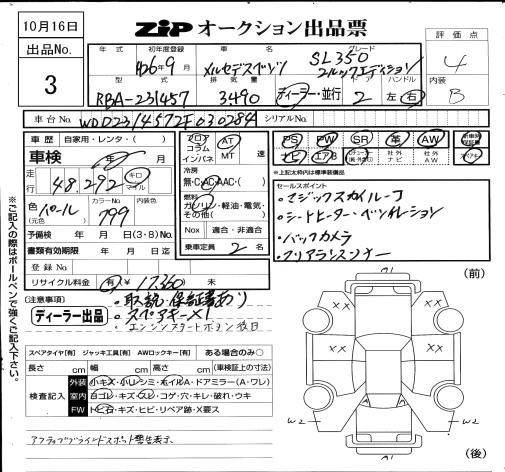 10月16日
ZIP オークション出品票
出品No.
3
年式 初年度登録 車名 グレード
H26年9月 メルセデスベンツ SL350
型式 排気量 ドア ハンドル
RBA-231457 3490 ディーラー・並行 2 左 右
評価点
4
内装
B
車台No. WDD2314572F030284 シリアルNo.
車歴 自家用・レンタ・( )
車検 年 月
走行 48,212 キロ マイル
色 (元色) パール カラーNo. 799 内装色
予備検 年 月 日(3・8)No.
書類有効期限 年 月 日迄
登録No.
リサイクル料金 有(¥ 17,360) 未
フロア コラム インパネ AT MT 速
冷房 無・C・AC・AAC・( )
燃料 ガソリン・軽油・電気・その他( )
Nox 適合・非適合
乗車定員 2 名
PS PW SR 革 AW
ナビ エアB 社外ナビ 社外AW
※上記太枠内は標準装備品
セールスポイント
・マジックスカイルーフ
・シートヒーター・ベンチレーション
・バックカメラ
・クリアランスソナー
(注意事項)
・取説・保証書あり
・スペアキー×1
・エンジンスタートボタン後日
ディーラー出品
※ご記入の際はボールペンで強くご記入下さい。
スペアタイヤ【有】 ジャッキ工具【有】 AWロックキー【有】 ある場合のみ〇
長さ cm 幅 cm 高さ cm (車検証上の寸法)
検査記入
外装 小キズ・小ハンシミ・ホイルA・ドアミラー(A・ワレ)
室内 ヨゴレ・キズ・スレ・コゲ・穴・キレ・破れ・ウキ
FW トビ石・キズ・ヒビ・リペア跡・X要ス
アクティブブラインドスポット警告表示
(前)
XX XX
XX XX
W2 W2
(後)